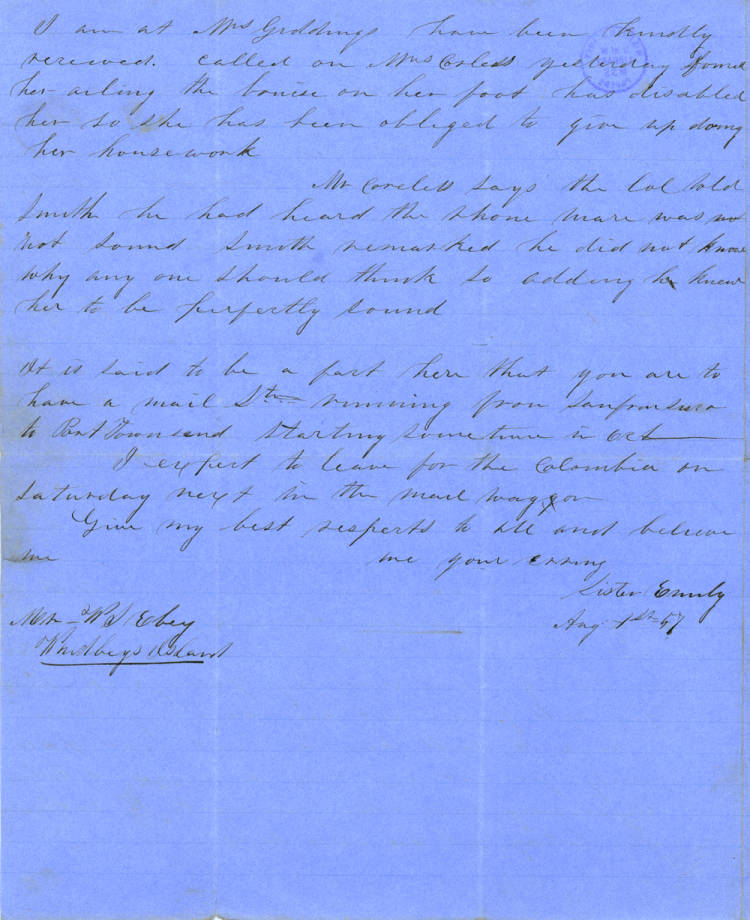 I am at Mrs Giddings have been kindly
received. called on Mrs Corless yesterday found
her ailing the bruise on her foot has disabled
her so she has been obliged to give up doing
her housework
Mr Coreless says the Col told
Smith he had heard the Shone mare was no
not sound Smith remarked he did not know
why any one should think so adding he knew
her to be perfectly sound
It is said to be a fact here that you are to
have a mail Str running from Sanfransisco
to Port Townsend starting sometime in Oct
I expect to leave for the Columbia on
Saturday next in the mail waggon
Give my best respects to all and believe
me me your
Sister Emily
Mrs W S Ebey Aug 1st 57
Whidbeys Island